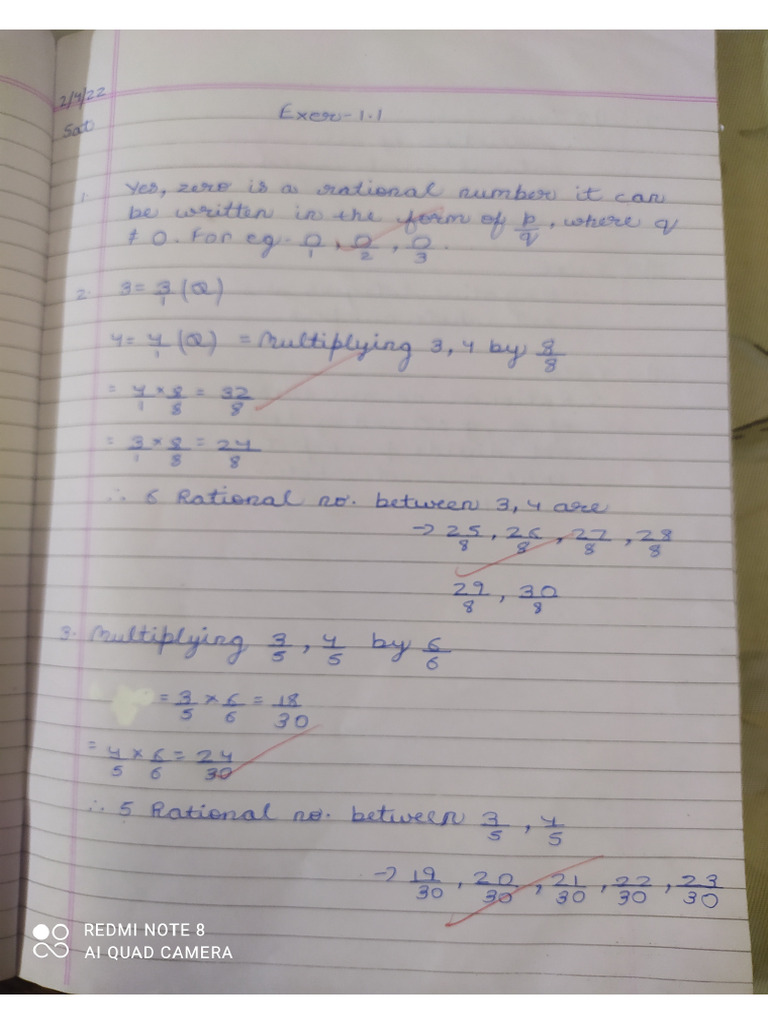 2/4/22
Sat
Exer-1.1
1. Yes, zero is a rational number it can
be written in the form of p/q, where q
≠ 0. For eg. 0/1, 0/2, 0/3.
2. 3 = 3/1 (Q)
4 = 4/1 (Q) = Multiplying 3, 4 by 8/8
= 4/1 × 8/8 = 32/8
= 3/1 × 8/8 = 24/8
∴ 6 Rational no. between 3, 4 are
→ 25/8, 26/8, 27/8, 28/8
29/8, 30/8
3. Multiplying 3/5, 4/5 by 6/6
= 3/5 × 6/6 = 18/30
= 4/5 × 6/6 = 24/30
∴ 5 Rational no. between 3/5, 4/5
→ 19/30, 20/30, 21/30, 22/30, 23/30
REDMI NOTE 8
AI QUAD CAMERA